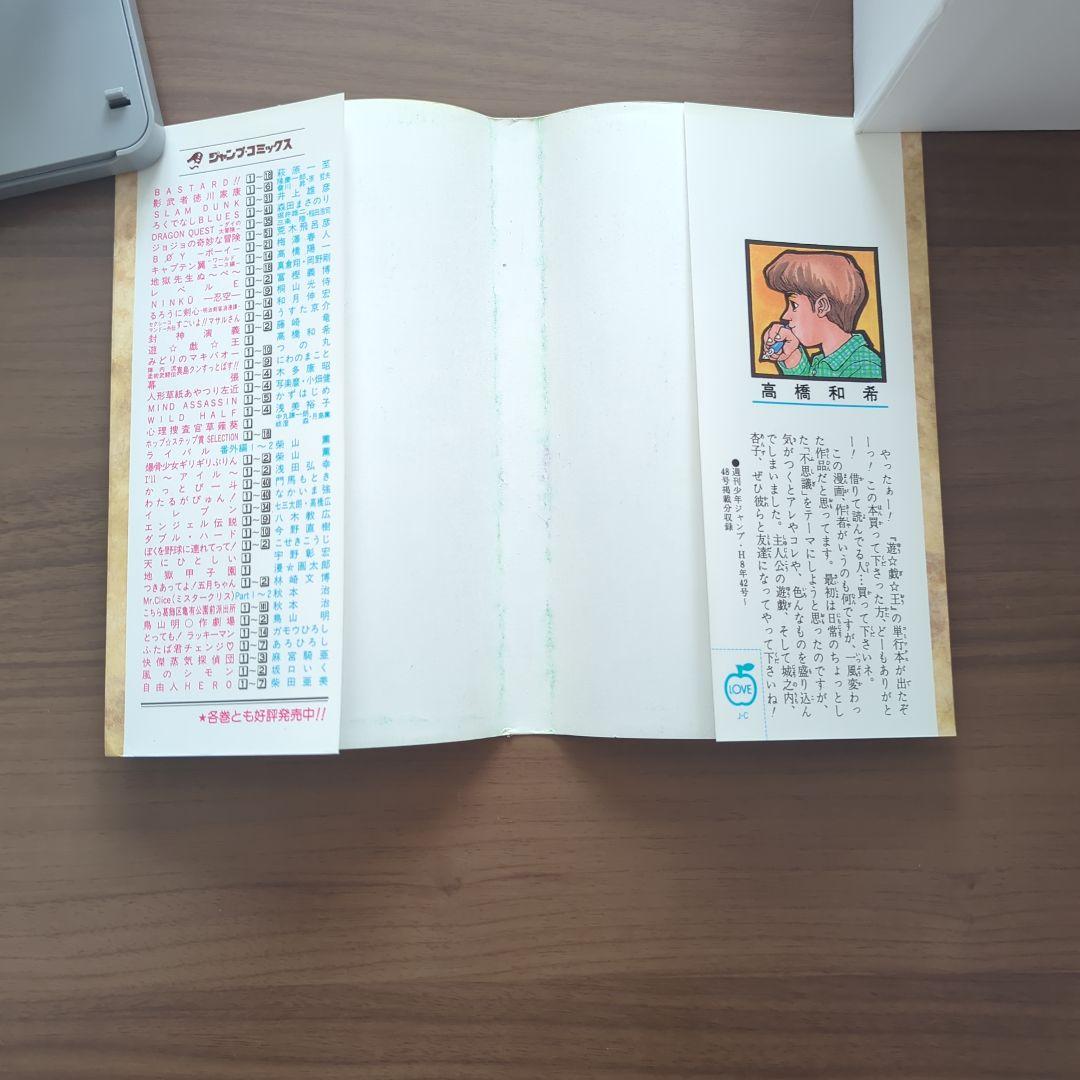 ジャンプ・コミックス
BASTARD!! 1~18 萩原一至
影武者徳川家康 1~6 隆慶一郎・原哲夫
SLAM DUNK 1~31 井上雄彦
ろくでなしBLUES 1~41 森田まさのり
DRAGON QUEST -ダイの大冒険- 三条陸・稲田浩司
ジョジョの奇妙な冒険 荒木飛呂彦
BØY -ボーイ- 梅澤春人
キャプテン翼 -ワールドユース編- 高橋陽一
地獄先生ぬ~べ~ 真倉翔・岡野剛
レベルE 冨樫義博
NINKŪ —忍空— 桐山光侍
るろうに剣心 -明治剣客浪漫譚- 和月伸宏
セクシーコマンドー外伝 すごいよ!!マサルさん うすた京介
封神演義 藤崎竜
遊☆戯☆王 高橋和希
みどりのマキバオー つの丸
陣内流柔術武闘伝 真島クンすっとばす!! にわのまこと
幕張 木多康昭
人形草紙あやつり左近 写楽麿・小畑健
MIND ASSASSIN かずはじめ
WILD HALF 浅美裕子
心理捜査官草薙葵 月島薫
ホップ☆ステップ賞 SELECTION 1~18
ライバル 番外編1~2 柴山薫
爆骨少女ギリギリぷりん 柴山薫
I'll ~アイル~ 浅田弘幸
かっとび一斗 門馬もとき
わたるがぴゅん! なかいま強
イレブン 七三太朗・高橋広
エンジェル伝説 八木教広
ダブル・ハード 今野直樹
ぼくを野球に連れてって! こせきこうじ
天にひとしい 宇野彰宏
地獄甲子園 漫☆画太郎
つきあってよ!五月ちゃん 林崎文博
Mr.Clice(ミスタークリス) Part1~2 秋本治
こちら葛飾区亀有公園前派出所 秋本治
鳥山明○作劇場 1~2 鳥山明
とっても!ラッキーマン ガモウひろし
ふたば君チェンジ♡ あろひろし
快傑蒸気探偵団 1~3 麻宮騎亜
風のシモン 1~2 坂口いく
自由人HERO 1~7 柴田亜美
★各巻とも好評発売中!!
高橋和希
やったぁー!『遊☆戯☆王』の単行本が出たぞ
ーっ!この本買って下さった方、どーもありがと
ー!借りて読んでる人…買って下さいネ。
この漫画、作者がいうのも何ですが、一風変わっ
た作品だと思ってます。最初は日常のちょっとし
た「不思議」をテーマにしようと思ったのですが、
気がつくとアレやコレや、色んなものを盛り込ん
でしまいました。主人公の遊戯、そして城之内、
杏子、ぜひ彼らと友達になってやって下さいね!
●週刊少年ジャンプ・H8年42号~
48号掲載分収録
LOVE
J-C